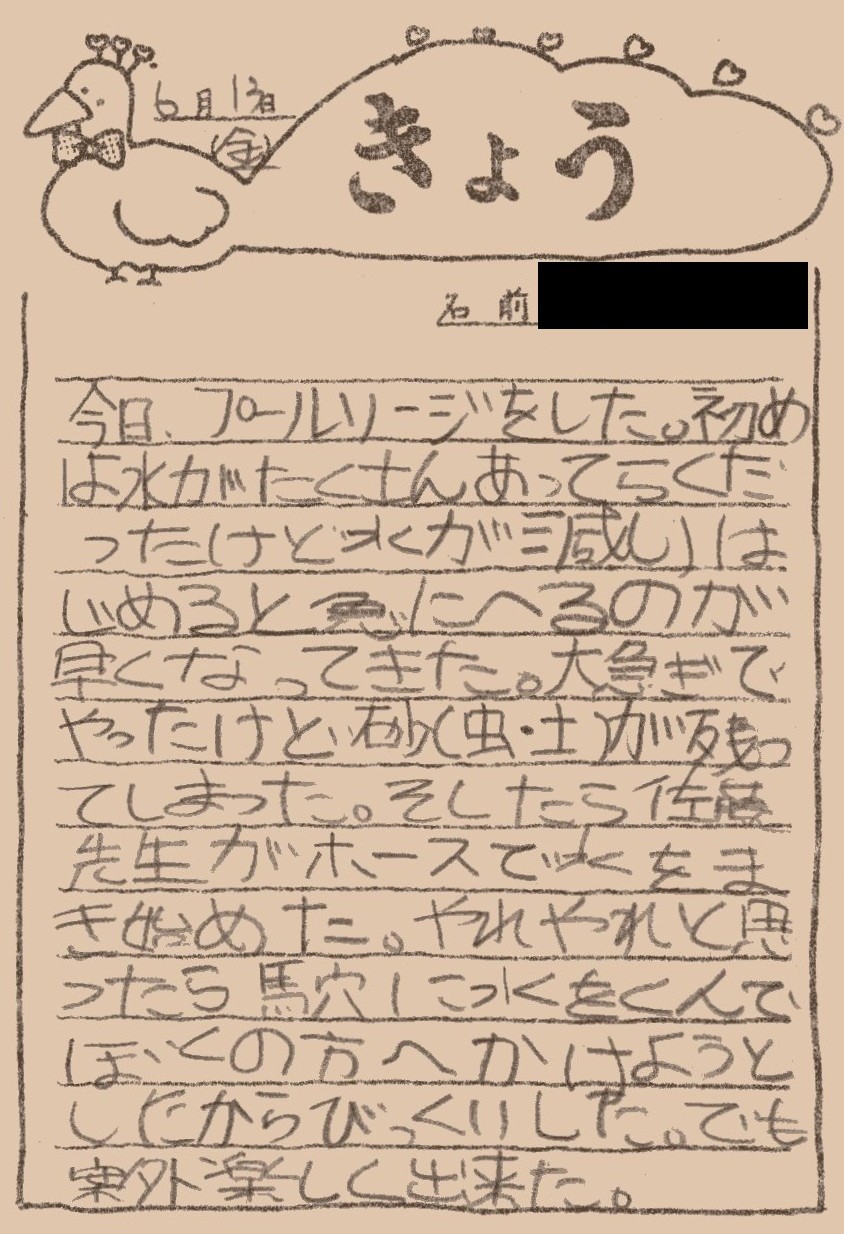 6月13日
(金)
きょう
名前
今日、プールソージをした。初め
は水がたくさんあってらくだ
ったけど水が減りは
じめると急にへるのが
早くなってきた。大急ぎで
やったけど砂(虫・土)が残っ
てしまった。そしたら佐藤
先生がホースで水をま
き始めた。やれやれと思
ったら馬穴に水をくんで
ぼくの方へかけようと
したからびっくりした。でも
案外楽しく出来た。